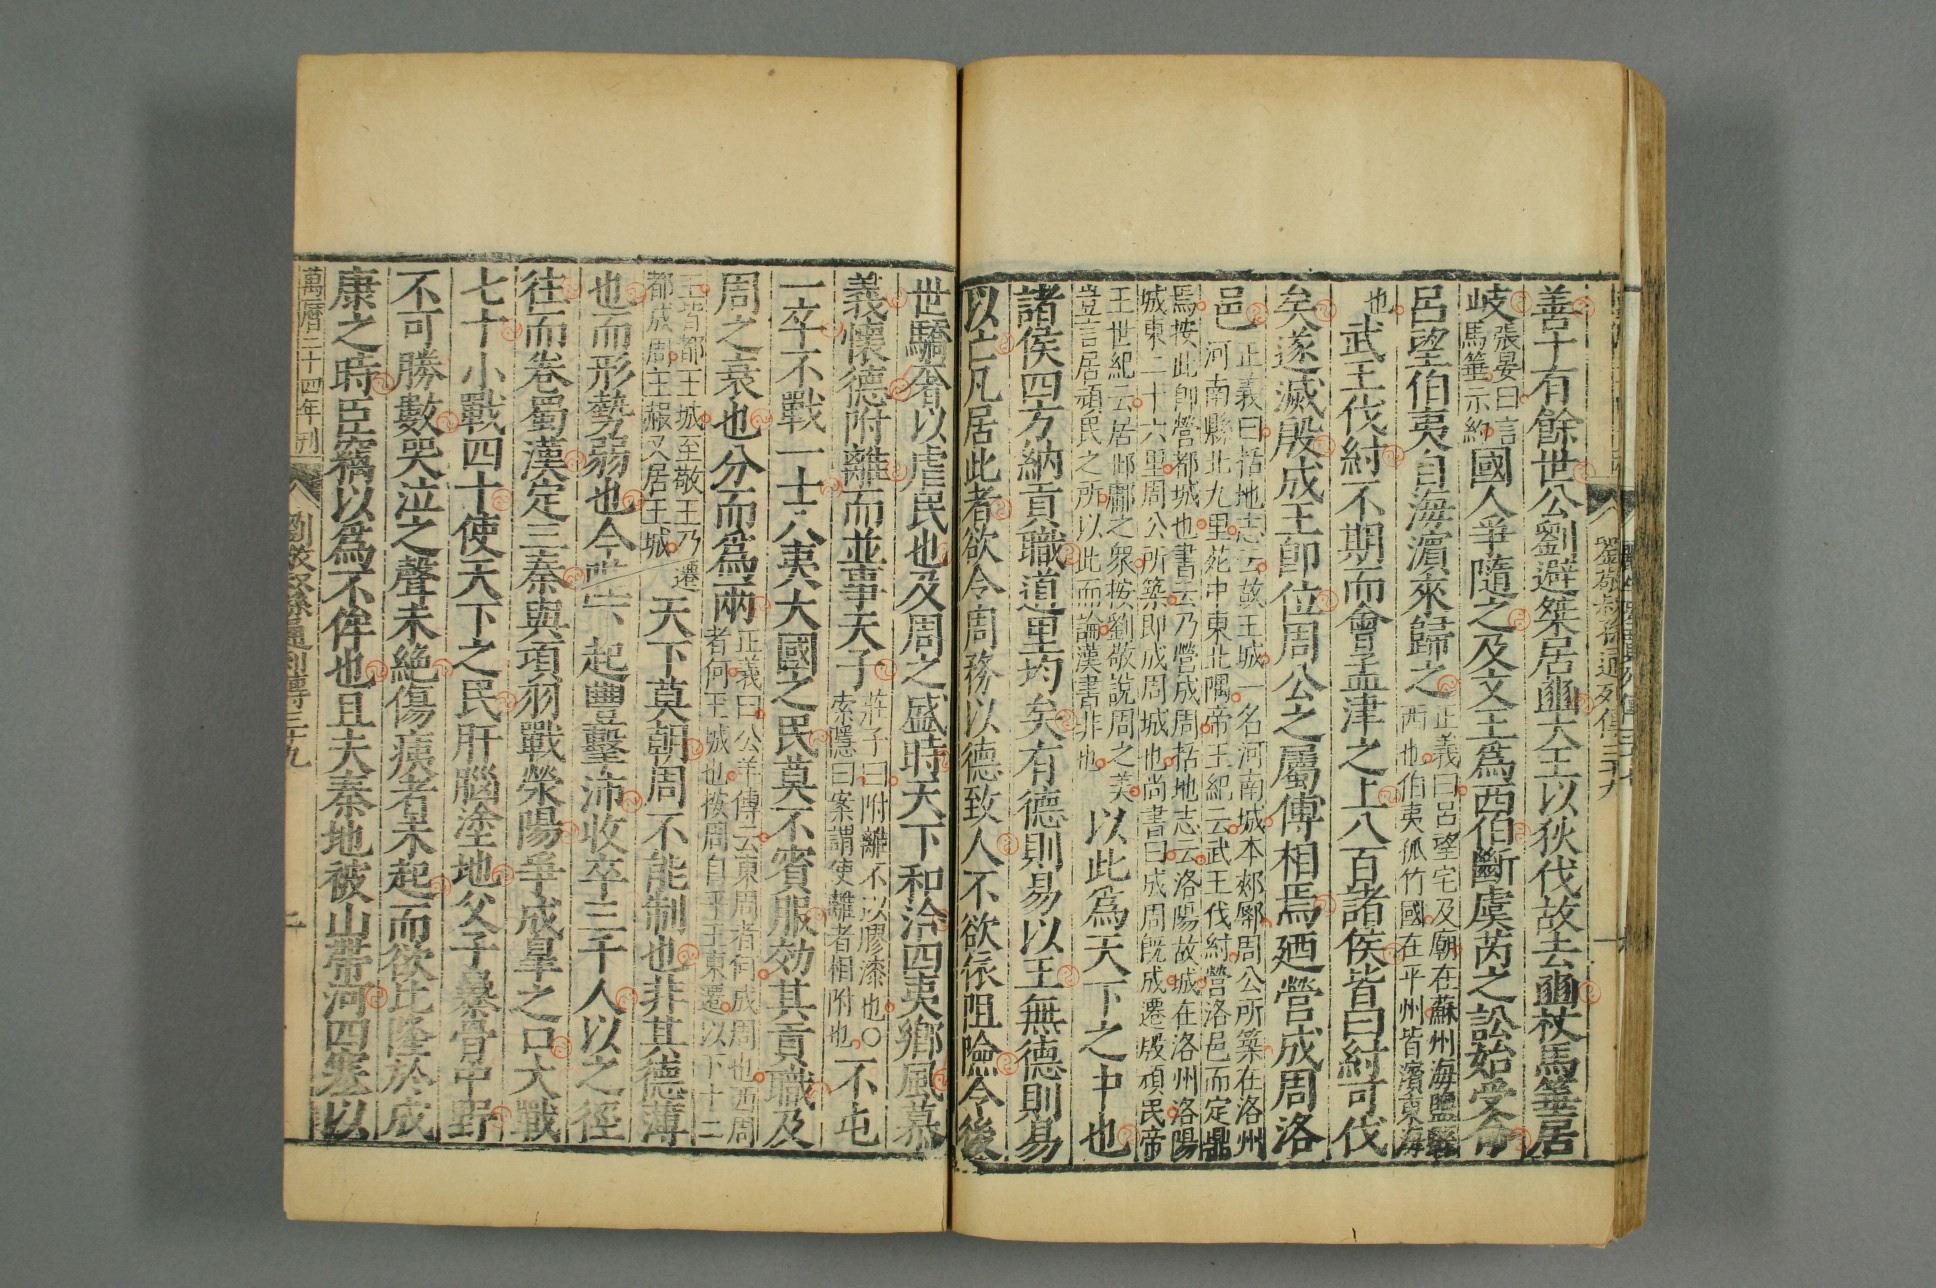 善十有餘世公劉避桀居豳大王以狄伐故去豳杖馬箠居
岐張晏曰言馬箠示約國人爭隨之及文王爲西伯斷虞芮之訟始受命
呂望伯夷自海濱來歸之正義曰呂望宅及廟在蘇州海鹽縣西也伯夷孤竹國在平州皆濱東海
也武王伐紂不期而會孟津之上八百諸侯皆曰紂可伐
矣遂滅殷成王即位周公之屬傅相焉廼營成周洛
邑正義曰括地志云故王城一名河南城本郟鄏周公所築在洛州
河南縣北九里苑中東北隅帝王紀云武王伐紂營洛邑而定鼎
焉按此即營都城也書云乃營成周括地志云洛陽故城在洛州洛陽
城東二十六里周公所築即成周城也尚書曰成周既成遷殷頑民帝
王世紀云居邶鄘之衆按劉敬說周之美
豈言居頑民之所以此而論漢書非也以此爲天下之中也
諸侯四方納貢職道里均矣有德則易以王無德則易
以亡凡居此者欲令周務以德致人不欲依阻險令後
劉敬叔孫通列傳三十九
世驕奢以虐民也及周之盛時天下和洽四夷鄉風慕
義懷德附離而並事天子莊子曰附離不以膠漆也○索隱曰案謂使離者相附也不屯
一卒不戰一士八夷大國之民莫不賓服効其貢職及
周之衰也分而爲兩正義曰公羊傳云東周者何成周也西周者何王城也按周自平王東遷以下十二
王皆都王城至敬王乃遷都成周王赧又居王城天下莫朝周不能制也非其德薄
也而形勢弱也今 起豐擊沛收卒三千人以之徑
往而卷蜀漢定三秦與項羽戰滎陽爭成皋之口大戰
七十小戰四十使天下之民肝腦塗地父子暴骨中野
不可勝數哭泣之聲未絶傷痍者未起而欲比隆於成
康之時臣竊以爲不侔也且夫秦地被山帶河四塞以
萬曆二十四年刊
劉敬叔孫通列傳三十九
二